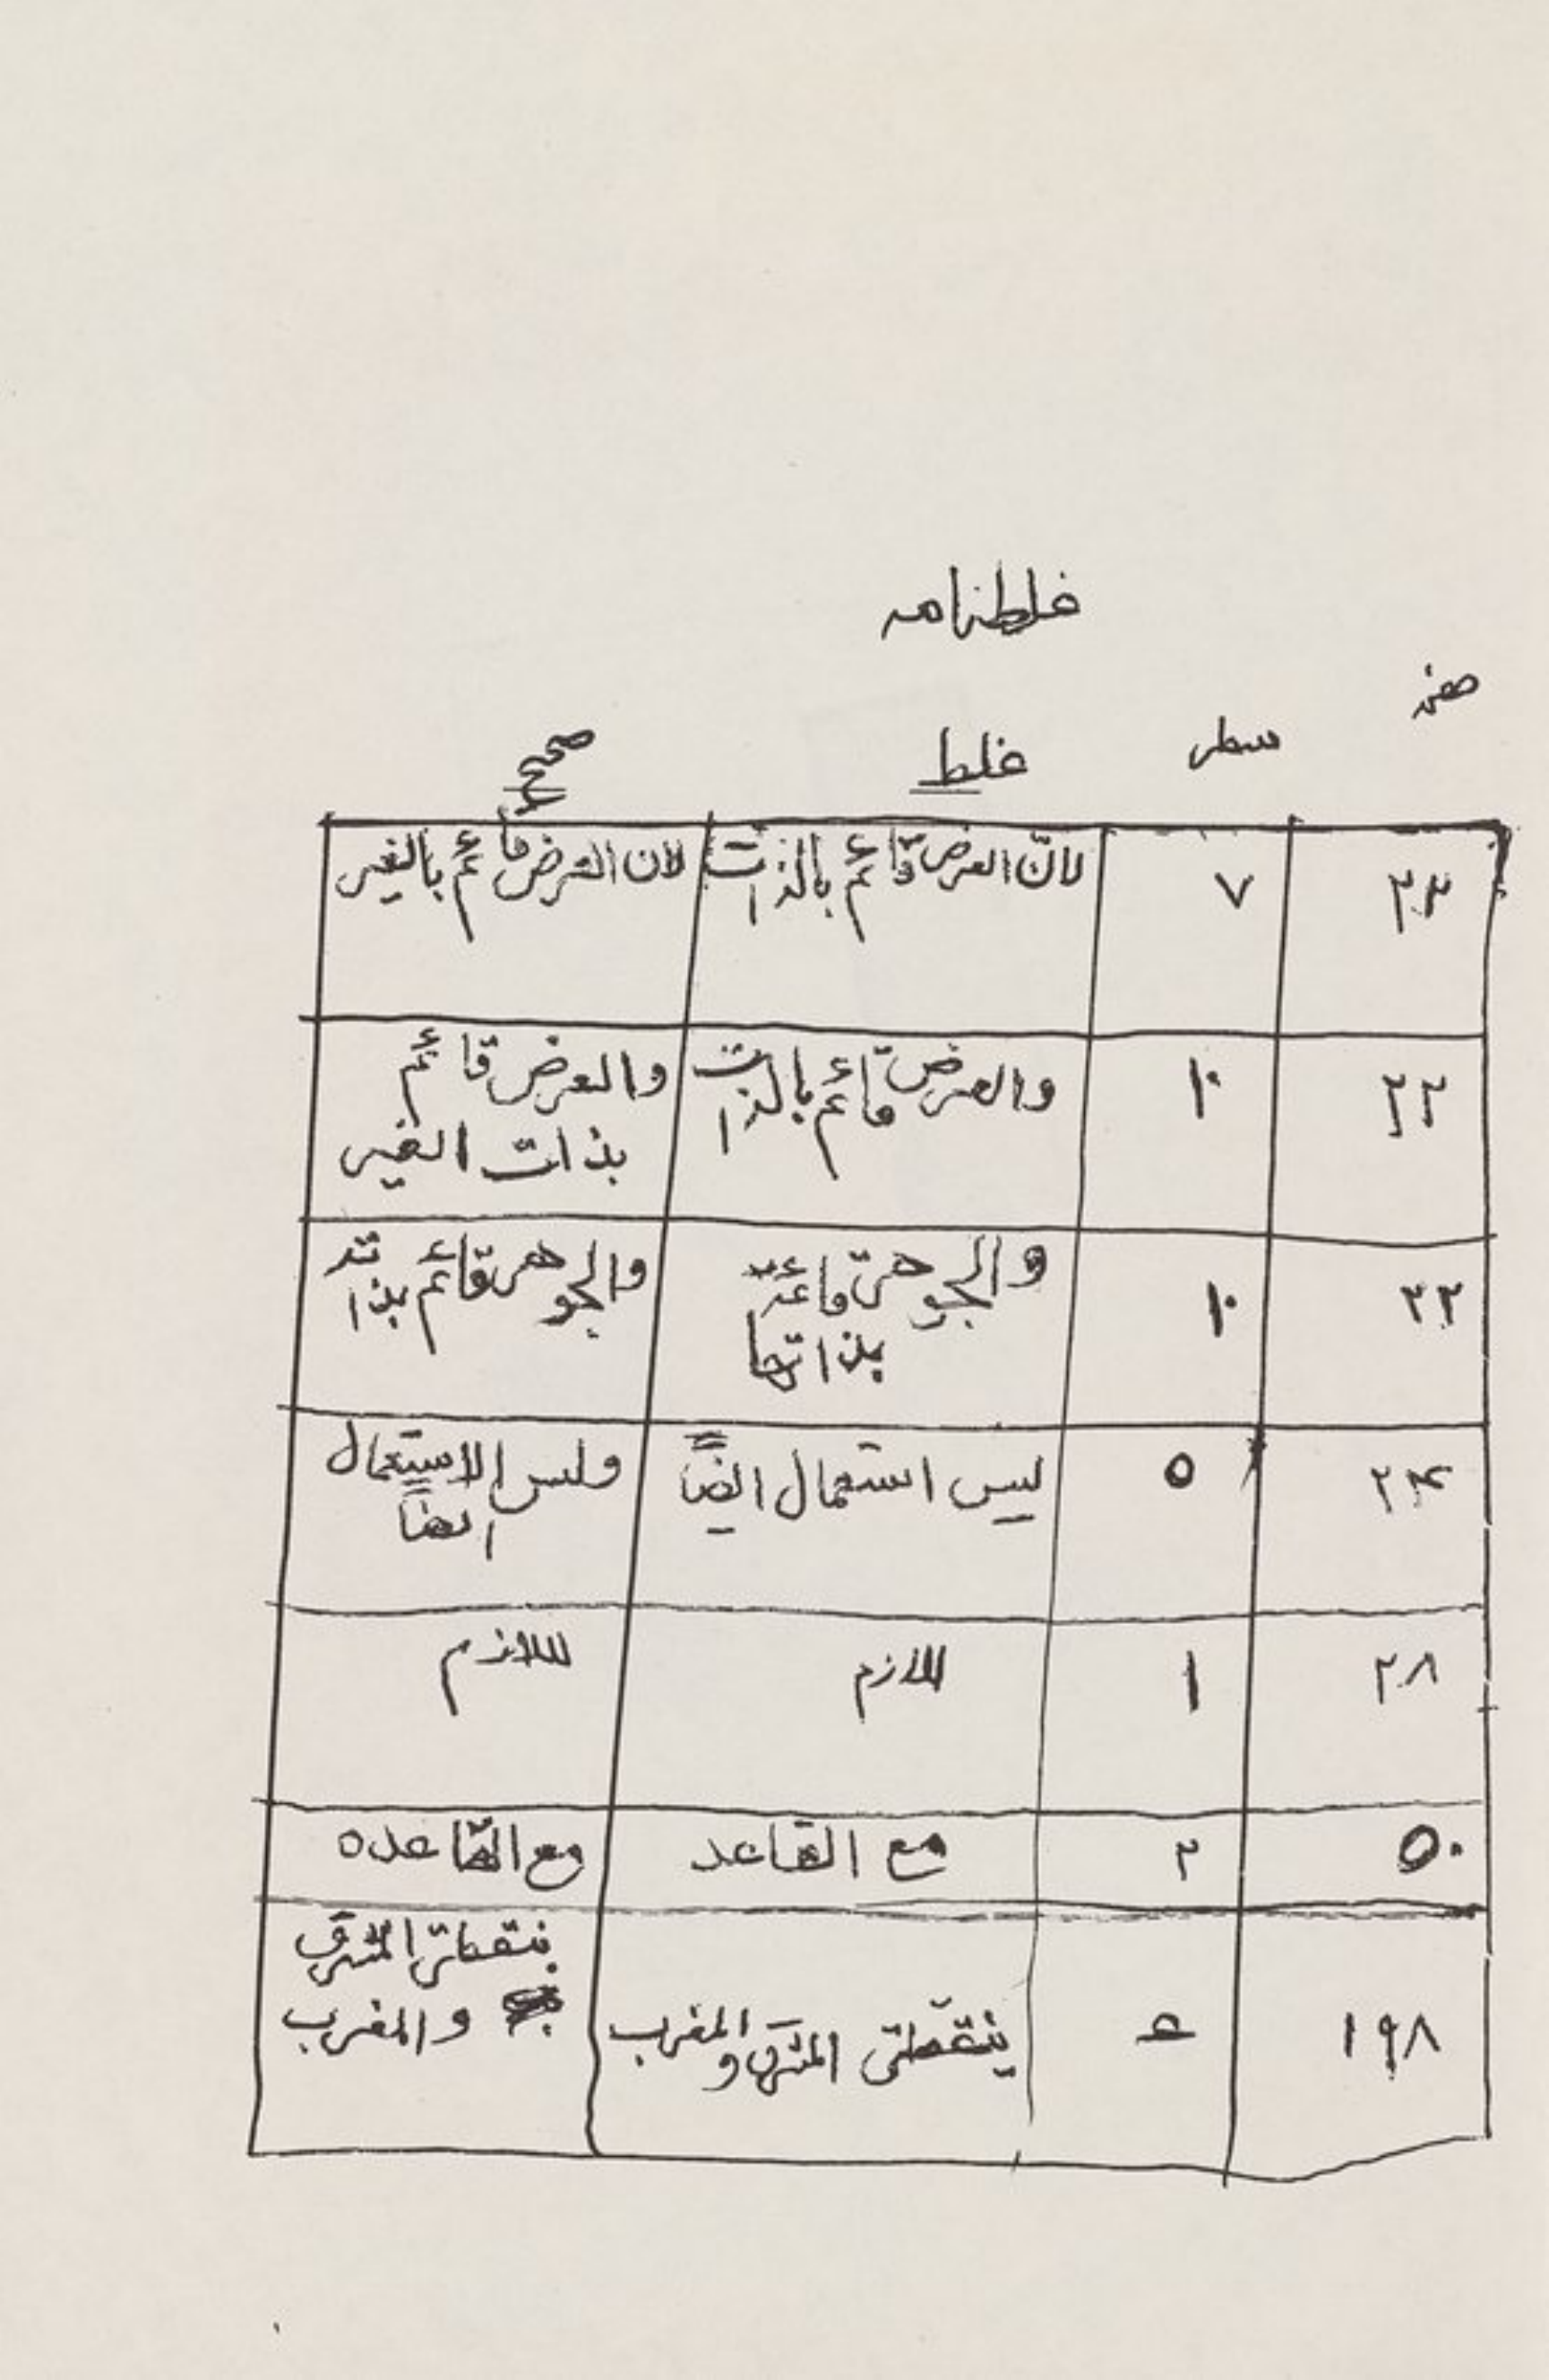 غلطنامه
صفحه سطر غلط صحیح
۲۳ ۷ لانّ العرض قائم بالذات لان العرض قائم بالغیر
۲۳ ۱۰ والعرض قائم بالذات والعرض قائم
بذات الغیر
۲۳ ۱۰ والجوهر قائمة والجوهر قائم بذاته
بذاتها
۲۴ ۵ لیس استعمال ایضاً ولیس الاستعمال
ایضاً
۲۸ ۱ الملازم للازم
۵۰ ۲ مع القاعد مع القاعده
۱۹۸ المشرق
والمغرب المشرق والمغرب